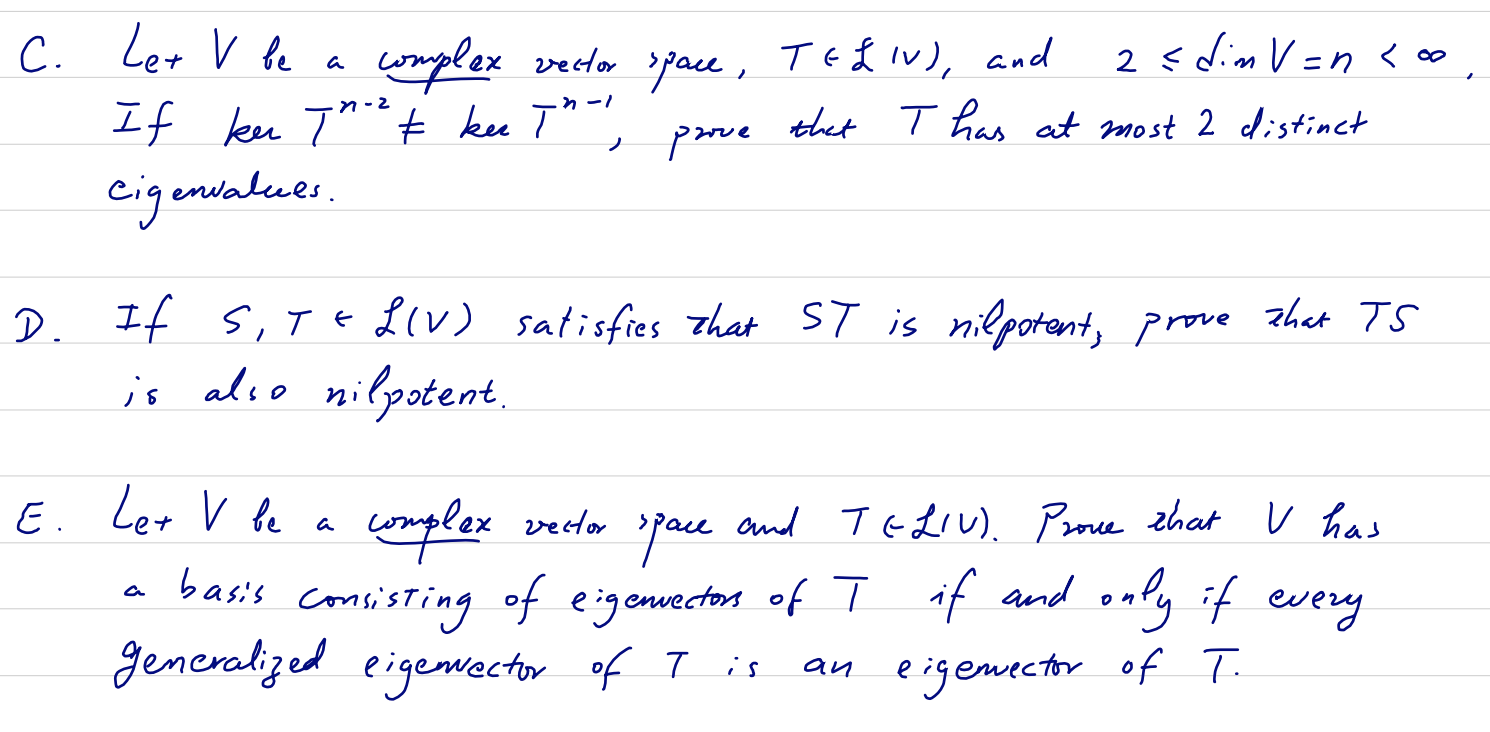 C. Let V be a complex vector space, T ∈ ℒ(V), and 2 ≤ dim V = n < ∞.
If ker Tⁿ⁻² ≠ ker Tⁿ⁻¹, prove that T has at most 2 distinct
eigenvalues.
D. If S, T ∈ ℒ(V) satisfies that ST is nilpotent, prove that TS
is also nilpotent.
E. Let V be a complex vector space and T ∈ ℒ(V). Prove that V has
a basis consisting of eigenvectors of T if and only if every
generalized eigenvector of T is an eigenvector of T.